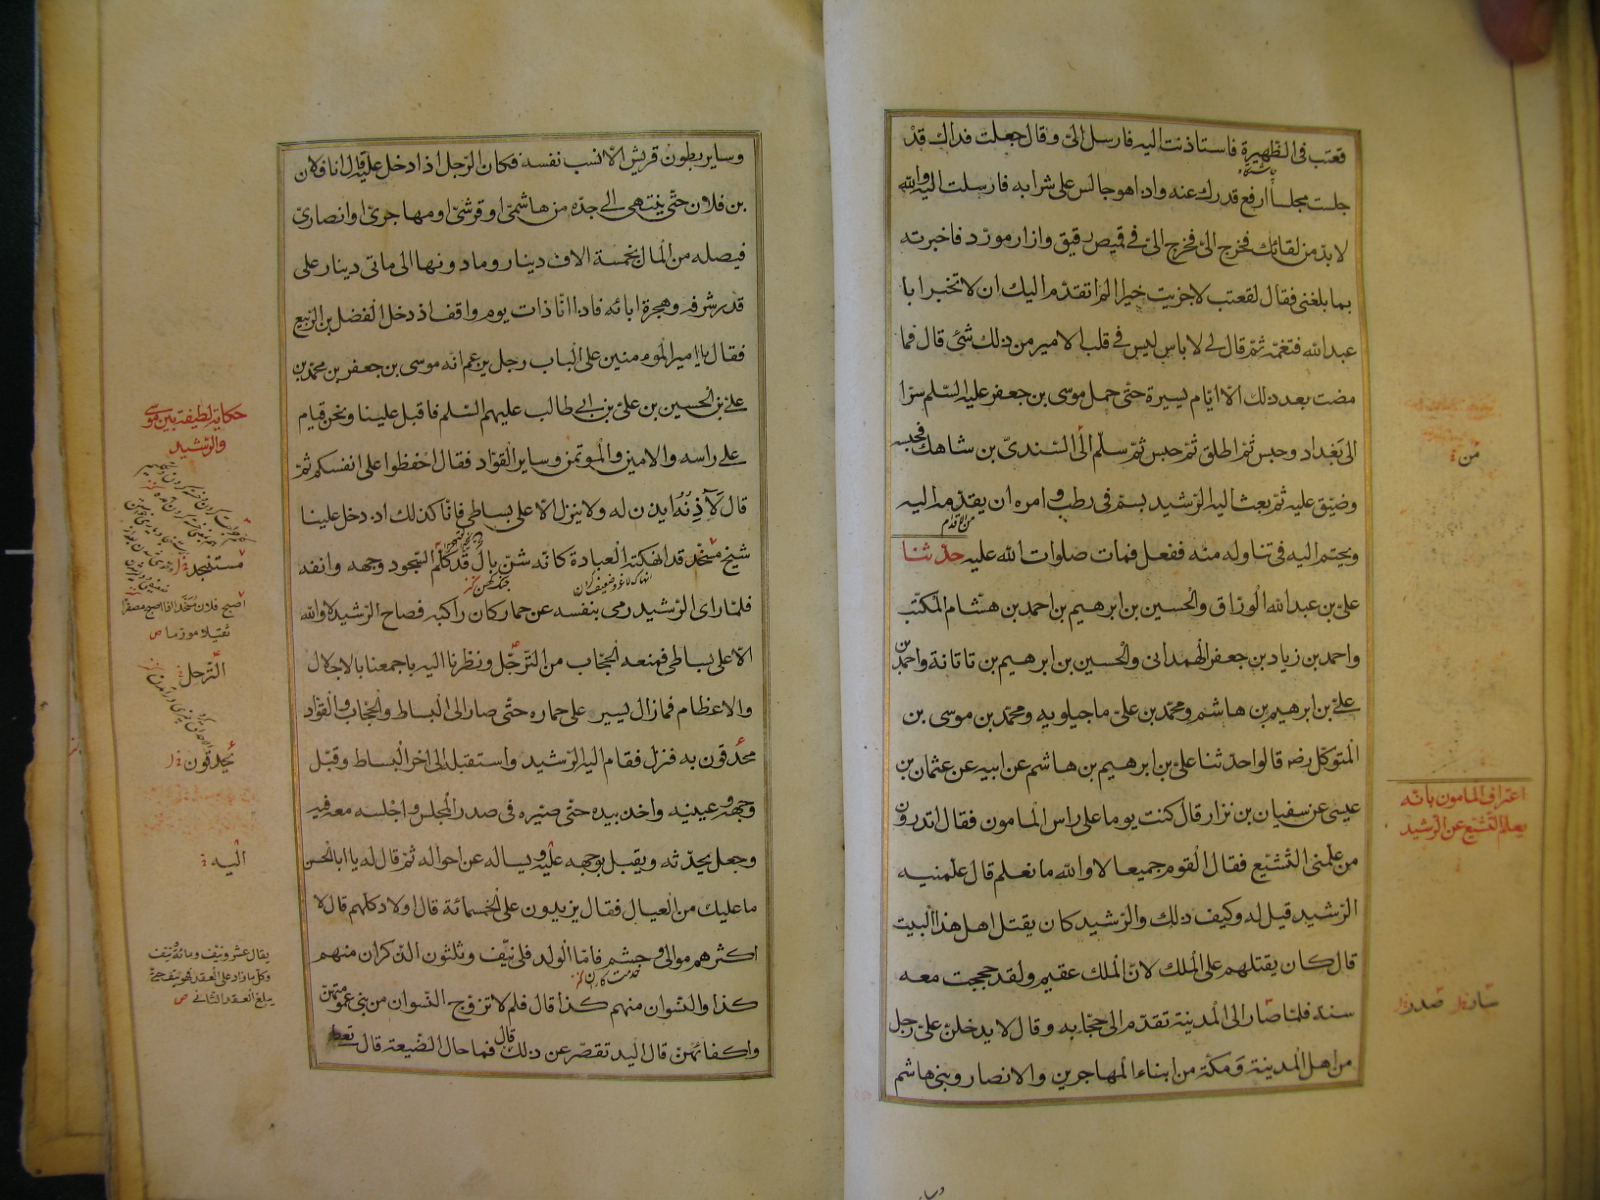 قعتب فى الظهيرة فاستاذنت اليه فارسل الىّ وقال جعلت فداك قد
جلست مجلسا ارفع قدرك عنه واذا هو جالس على شرابه فارسلت اليه والله
لابدّ من لقائك فخرج الىّ فى قميص رقيق وازار مورّد فاخبرته
بما بلغنى فقال لقعتب لا جزيت خيرا الم اتقدّم اليك ان لا تخبر ابا
عبد الله فتغمّه ثمّ قال لى لا باس ليس فى قلب الامير من ذلك شئ قال فما
مضت بعد ذلك الّا ايّام يسيرة حتّى حمل موسى بن جعفر عليه السّلم سرّا
الى بغداد وحبس ثمّ اطلق ثمّ حبس ثمّ سلّم الى السّندىّ بن شاهك فحبسه
وضيّق عليه ثمّ بعث اليه الرّشيد بسمّ فى رطب وامره ان يقدّمه اليه
ويحتم اليه فى تناوله منه ففعل فمات صلوات الله عليه حدّثنا
علىّ بن عبد الله الورّاق والحسين بن ابرهيم بن احمد بن هشام المكتّب
واحمد بن زياد بن جعفر الهمدانى والحسين بن ابرهيم بن تاتانة واحمد بن
على بن ابرهيم بن هاشم ومحمّد بن علىّ ماجيلويه ومحمّد بن موسى بن
المتوكل رضه قالوا حدّثنا علىّ بن ابرهيم بن هاشم عن ابيه عن عثمان بن
عيسى عن سفيان بن نزار قال كنت يوما على راس المامون فقال تدرون
من علّمنى التّشيّع فقال القوم جميعا لا والله ما نعلم قال علّمنيه
الرّشيد قيل له وكيف ذلك والرّشيد كان يقتل اهل هذا البيت
قال كان يقتلهم على الملك لانّ الملك عقيم ولقد حججت معه
سنة فلمّا صار الى المدينة تقدّم الى حجّابه وقال لا يدخلنّ علىّ رجل
من اهل المدينة ومكّة من ابناء المهاجرين والانصار وبنى هاشم
من
اعتراف المامون بانّه
يعلم التّشيّع عن الرّشيد
وساير بطون قريش الّا نسب نفسه فكان الرّجل اذا دخل عليه قال انا فلان
بن فلان حتّى ينتهى الى جدّه من هاشمىّ او قرشىّ او مهاجرىّ او انصارىّ
فيصله من المال بخمسة الاف دينار وما دونها الى مأتى دينار على
قدر شرفه وهجرة ابائه فاذا انا ذات يوم واقف اذ دخل الفضل بن الرّبيع
فقال يا امير المومنين على الباب رجل يزعم انّه موسى بن جعفر بن محمّد بن
على بن الحسين بن علىّ بن ابى طالب عليهم السّلم فاقبل علينا ونحن قيام
على راسه والامين والموتمن وساير القوّاد فقال احفظوا على انفسكم ثمّ
قال لآذنه ايذن له ولا ينزل الّا على بساطى فانّا كذلك اذ دخل علينا
شيخ مسخّد قد انهكته العبادة كانّه شنّ بال قد كلم السّجود وجهه وانفه
فلمّا راى الرّشيد رمى بنفسه عن حمار كان راكبه فصاح الرّشيد لا والله
الّا على بساطى فمنعه الحجّاب من التّرجّل ونظرنا اليه باجمعنا بالاجلال
والاعظام فما زال يسير على حماره حتّى صار الى البساط والحجّاب والقوّاد
محدقون به فنزل فقام اليه الرّشيد واستقبله الى اخر البساط وقبّل
وجهه وعينيه واخذ بيده حتّى صيّره فى صدر المجلس واجلسه معه فيه
وجعل يحدّثه ويقبل بوجهه عليه ويساله عن احواله ثمّ قال له يا ابا الحسن
ما عليك من العيال فقال يزيدون على الخمسمائة قال اولاد كلّهم قال لا
اكثرهم موالى وحشم فامّا الولد فلى نيّف وثلثون الذّكران منهم
كذا والنّسوان منهم كذا قال فلم لا تزوّج النّسوان من بنى عمومتهنّ
واكفائهنّ قال اليد تقصر عن ذلك قال فما حال الضّيعة قال تعطى
حكاية لطيفة بين موسى
والرّشيد
التّرجل
يحدقون
اليه
يقال عشر ونيّف ومائة ونيّف
وكل ما زاد على العقد فهو نيّف حتّى
يبلغ العقد الثّانى ص